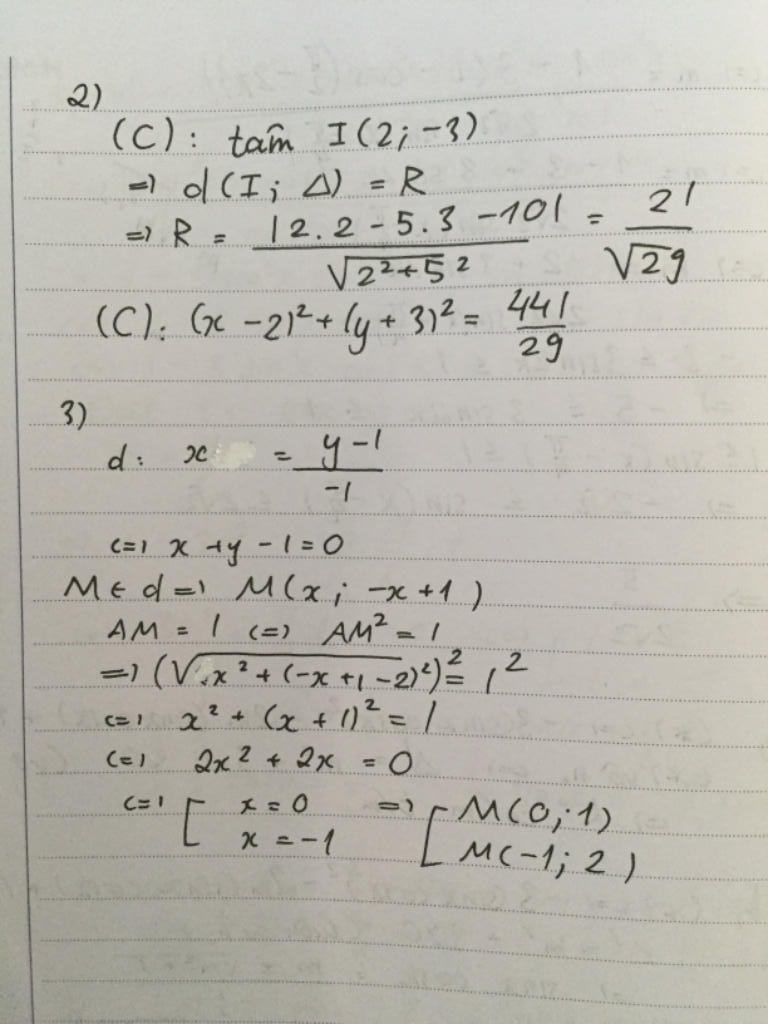 2)
(C): tâm I(2; -3)
=> d(I; Δ) = R
=> R = |2.2 - 5.3 - 10| / √2²+5² = 21 / √29
(C): (x - 2)² + (y + 3)² = 441/29
3)
d: x = y - 1 / -1
<=> x + y - 1 = 0
M ∈ d => M(x; -x + 1)
AM = 1 <=> AM² = 1
=> (√x² + (-x + 1 - 2)²)² = 1²
<=> x² + (x + 1)² = 1
<=> 2x² + 2x = 0
<=> [ x = 0 => [ M(0; 1)
x = -1 M(-1; 2)